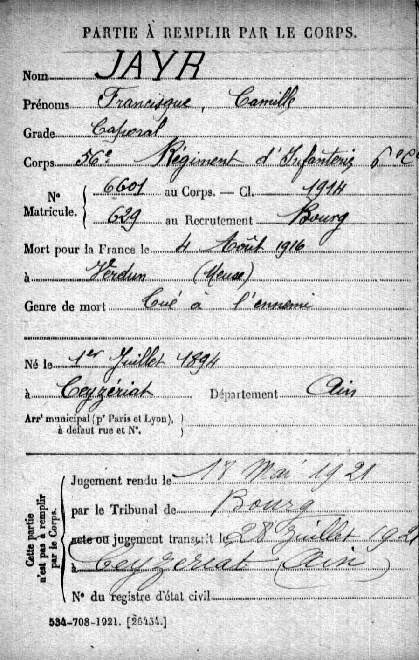 PARTIE À REMPLIR PAR LE CORPS.
Nom JAYR
Prénoms Francisque, Camille
Grade Caporal
Corps 56e Régiment d'Infanterie 6e Cie
N° Matricule. { 6601 au Corps. — Cl. 1914
629 au Recrutement Bourg
Mort pour la France le 4 Août 1916
à Verdun (Meuse)
Genre de mort Tué à l'ennemi
Né le 1er Juillet 1894
à Ceyzériat Département Ain
Arr' municipal (p' Paris et Lyon), à défaut rue et N°. }
Cette partie n'est pas à remplir par le Corps.
Jugement rendu le 18 Mai 1921
par le Tribunal de Bourg
acte ou jugement transcrit le 28 Juillet 1921
à Ceyzeriat (Ain)
N° du registre d'état civil
534-708-1921. [26434.]